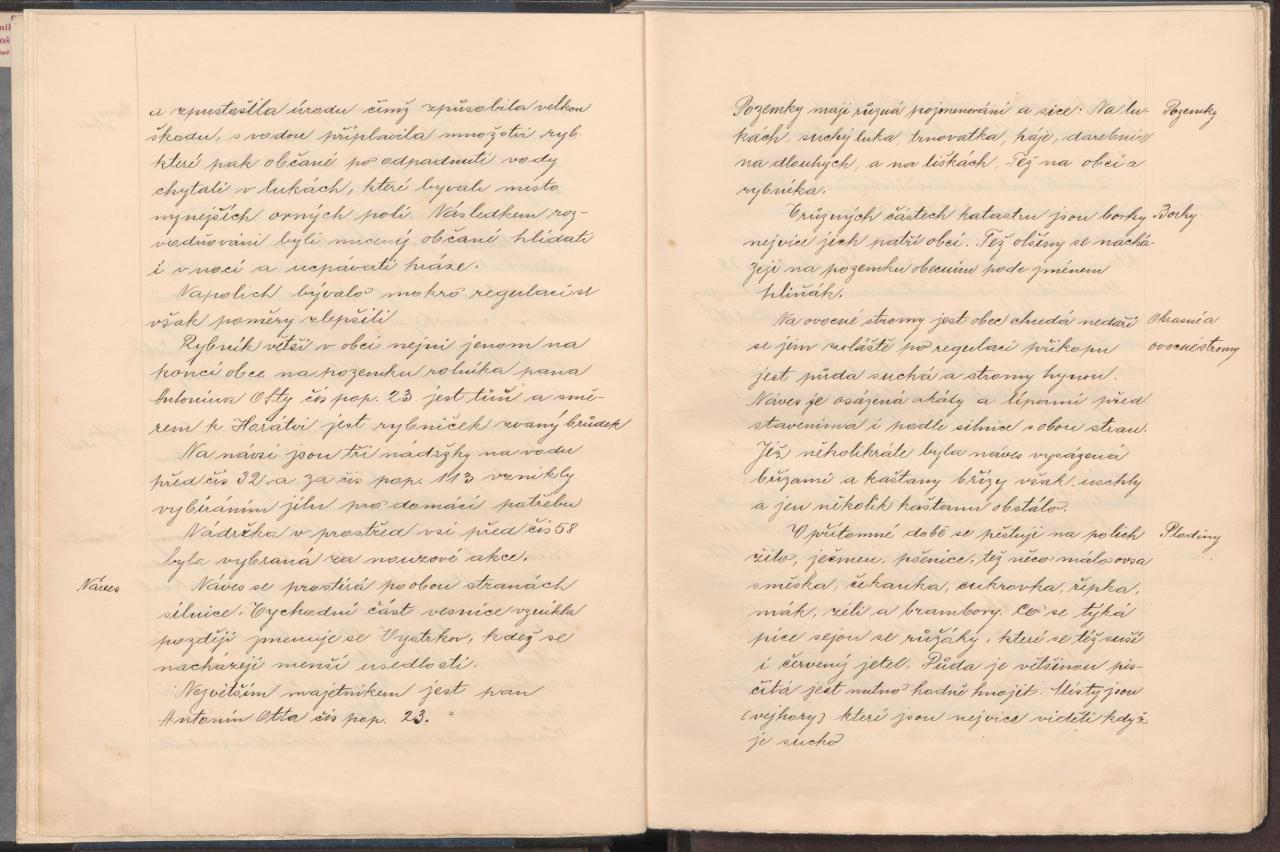 a zpustošila úrodu čímž způsobila velkou
škodu, s vodou připlavila množství ryb
které pak občané po odpadnutí vody
chytali v lukách, které byvali místo
nynejších orných polí. Následkem roz-
vodňování byli nuceny občané hlídati
i v noci a ucpávati hráze.
Na polích bývalo mokro regulací se
však poměry zlepšili
Rybník větší v obci nejní jenom na
konci obce na pozemku rolníka pana
Antonina Otty čís pop. 23. jest tůň a smě-
rem k Hořátvi jest rybniček zvaný brůdek
Na návsi jsou tři nádržky na vodu
před čís 32. a za čís pop. 113 vznikly
vybíráním jílu pro domácí potřebu
Nádržka v prostřed vsi před čís 58
byla vybraná za nouzové akce.
Náves
Náves se prostírá po obou stranách
silnice. Vychodní část vesnice vznikla
později jmenuje se Vystrkov, kdež se
nacházejí menší usedlosti.
Největším majetníkem jest pan
Antonín Otta čís pop. 23.
Pozemky mají různá pojmenování a sice: Na lu-
Pozemky
kách, suchý luka, trnovatka, háje, darebnice
na dlouhych, a na liškách. Též na obci a
rybníka.
V různých částech katastru jsou borky
Borky
nejvíce jich patří obci. Též olšiny se nachá-
zejí na pozemku obecním pode jménem
hliňák.
Na ovocné stromy jest obec chudá nedaří
Okrasné a
se jim zvláště po regulaci příkopu
ovocné stromy
jest půda suchá a stromy hynou.
Náves je osázená akáty a lípami před
staveníma i podle silnice s obou stran.
Již několikráte byla náves vysázená
břízami a kaštany břízy však uschly
a jen několik kaštanu obstálo.
V přítomné době se pěstuji na polích
Plodiny
žito, ječmen, pšenice, též něco málo ovsa
směska, čekanka, cukrovka, řepka,
mák, zelí a brambory. Co se týká
píce sejou se růžáky, které se též suší
i červený jetel. Půda je většinou pís-
čitá jest nutno hodně hnojit. Místy jsou
(vejhory) které jsou nejvíce viděti když
je sucho